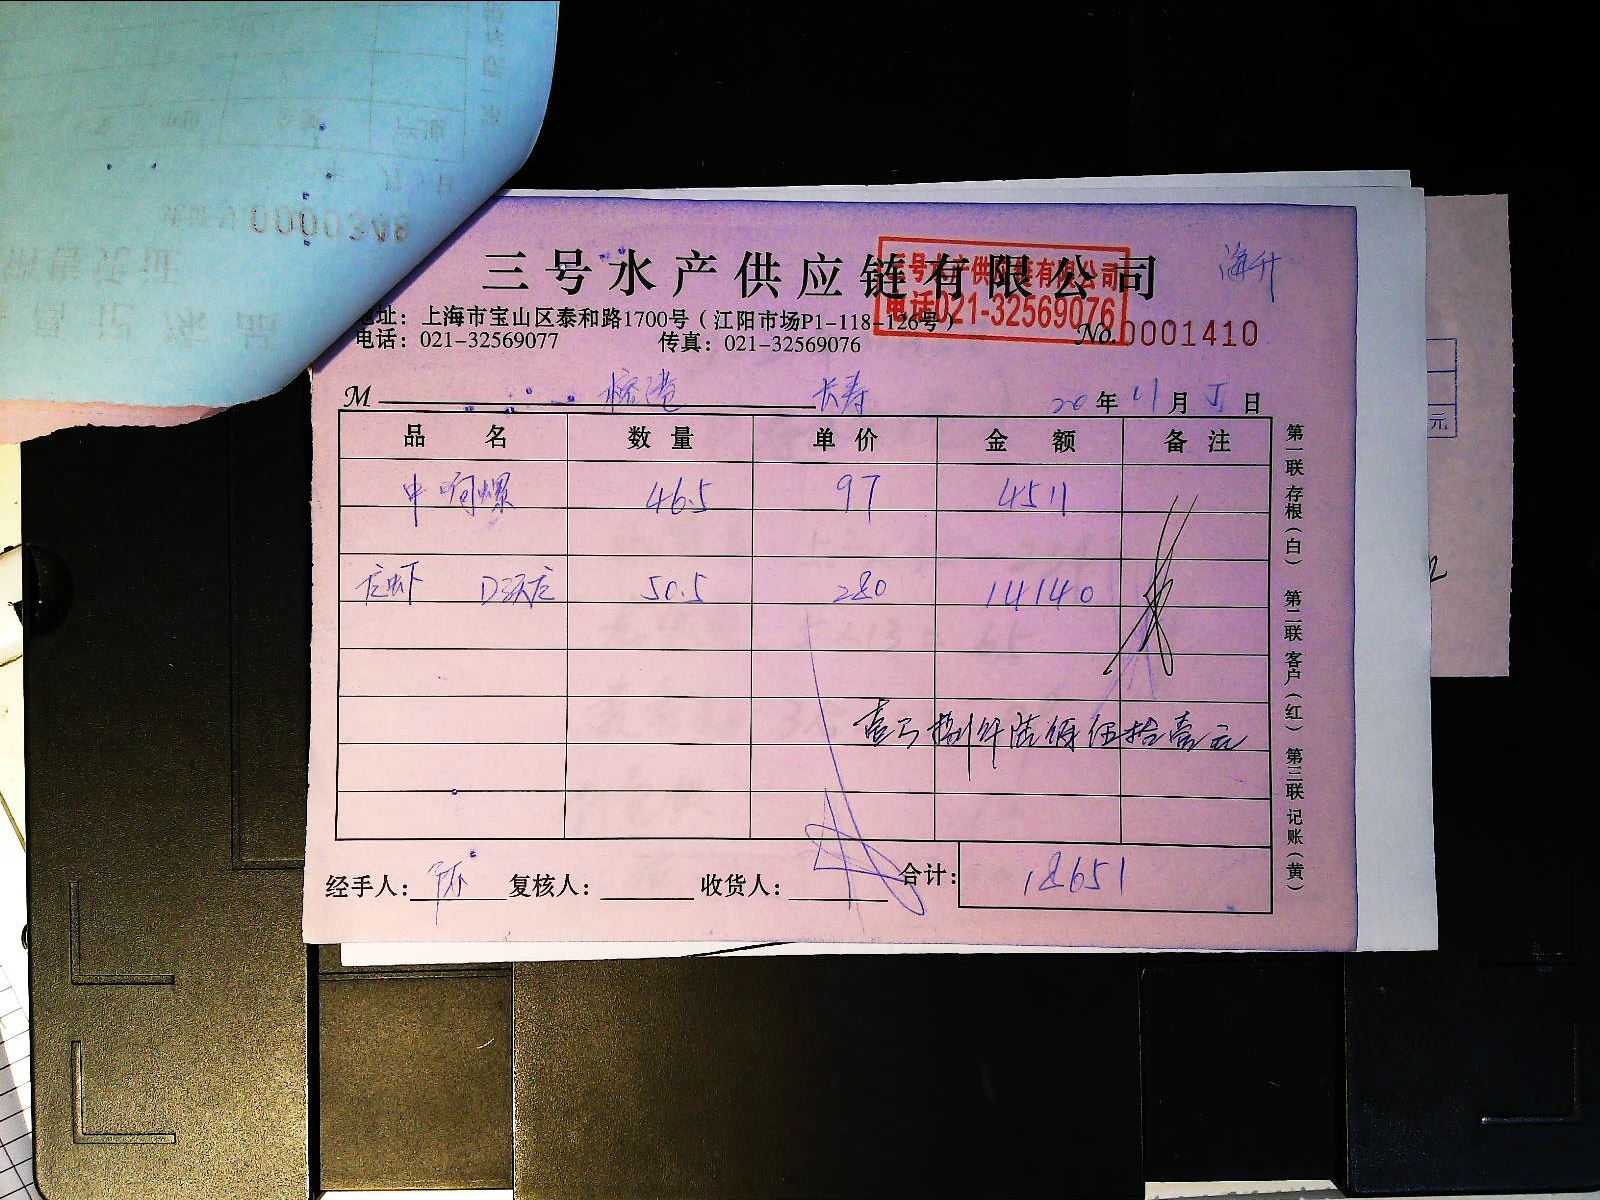 三号水产供应链有限公司
海升
三号水产供应链有限公司
电话021-32569076
地址：上海市宝山区泰和路1700号（江阳市场P1-118-126号）
电话：021-32569077 传真：021-32569076
No.0001410
M 长寿 20年11月5日
品名 数量 单价 金额 备注
中响螺 46.5 97 4511
龙虾 50.5 280 14140
壹万捌仟陆佰伍拾壹元
经手人： 复核人： 收货人： 合计：18651
第一联 存根（白） 第二联 客户（红） 第三联 记账（黄）
00000348
元